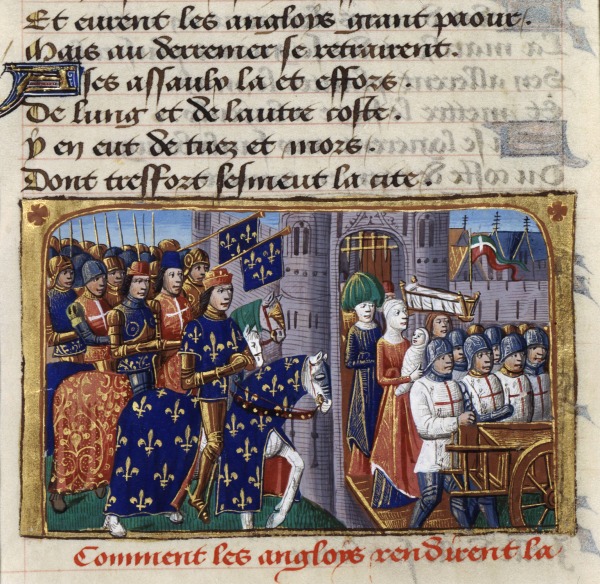 Et eurent les angloys grant paour.
Mais au derrenier se retrairent.
A ses assaulx la et effors.
De lung et de lautre coste.
y en eut de tuez et mors.
Dont tresfort sesmeut la cite.
Comment les angloys rendirent la